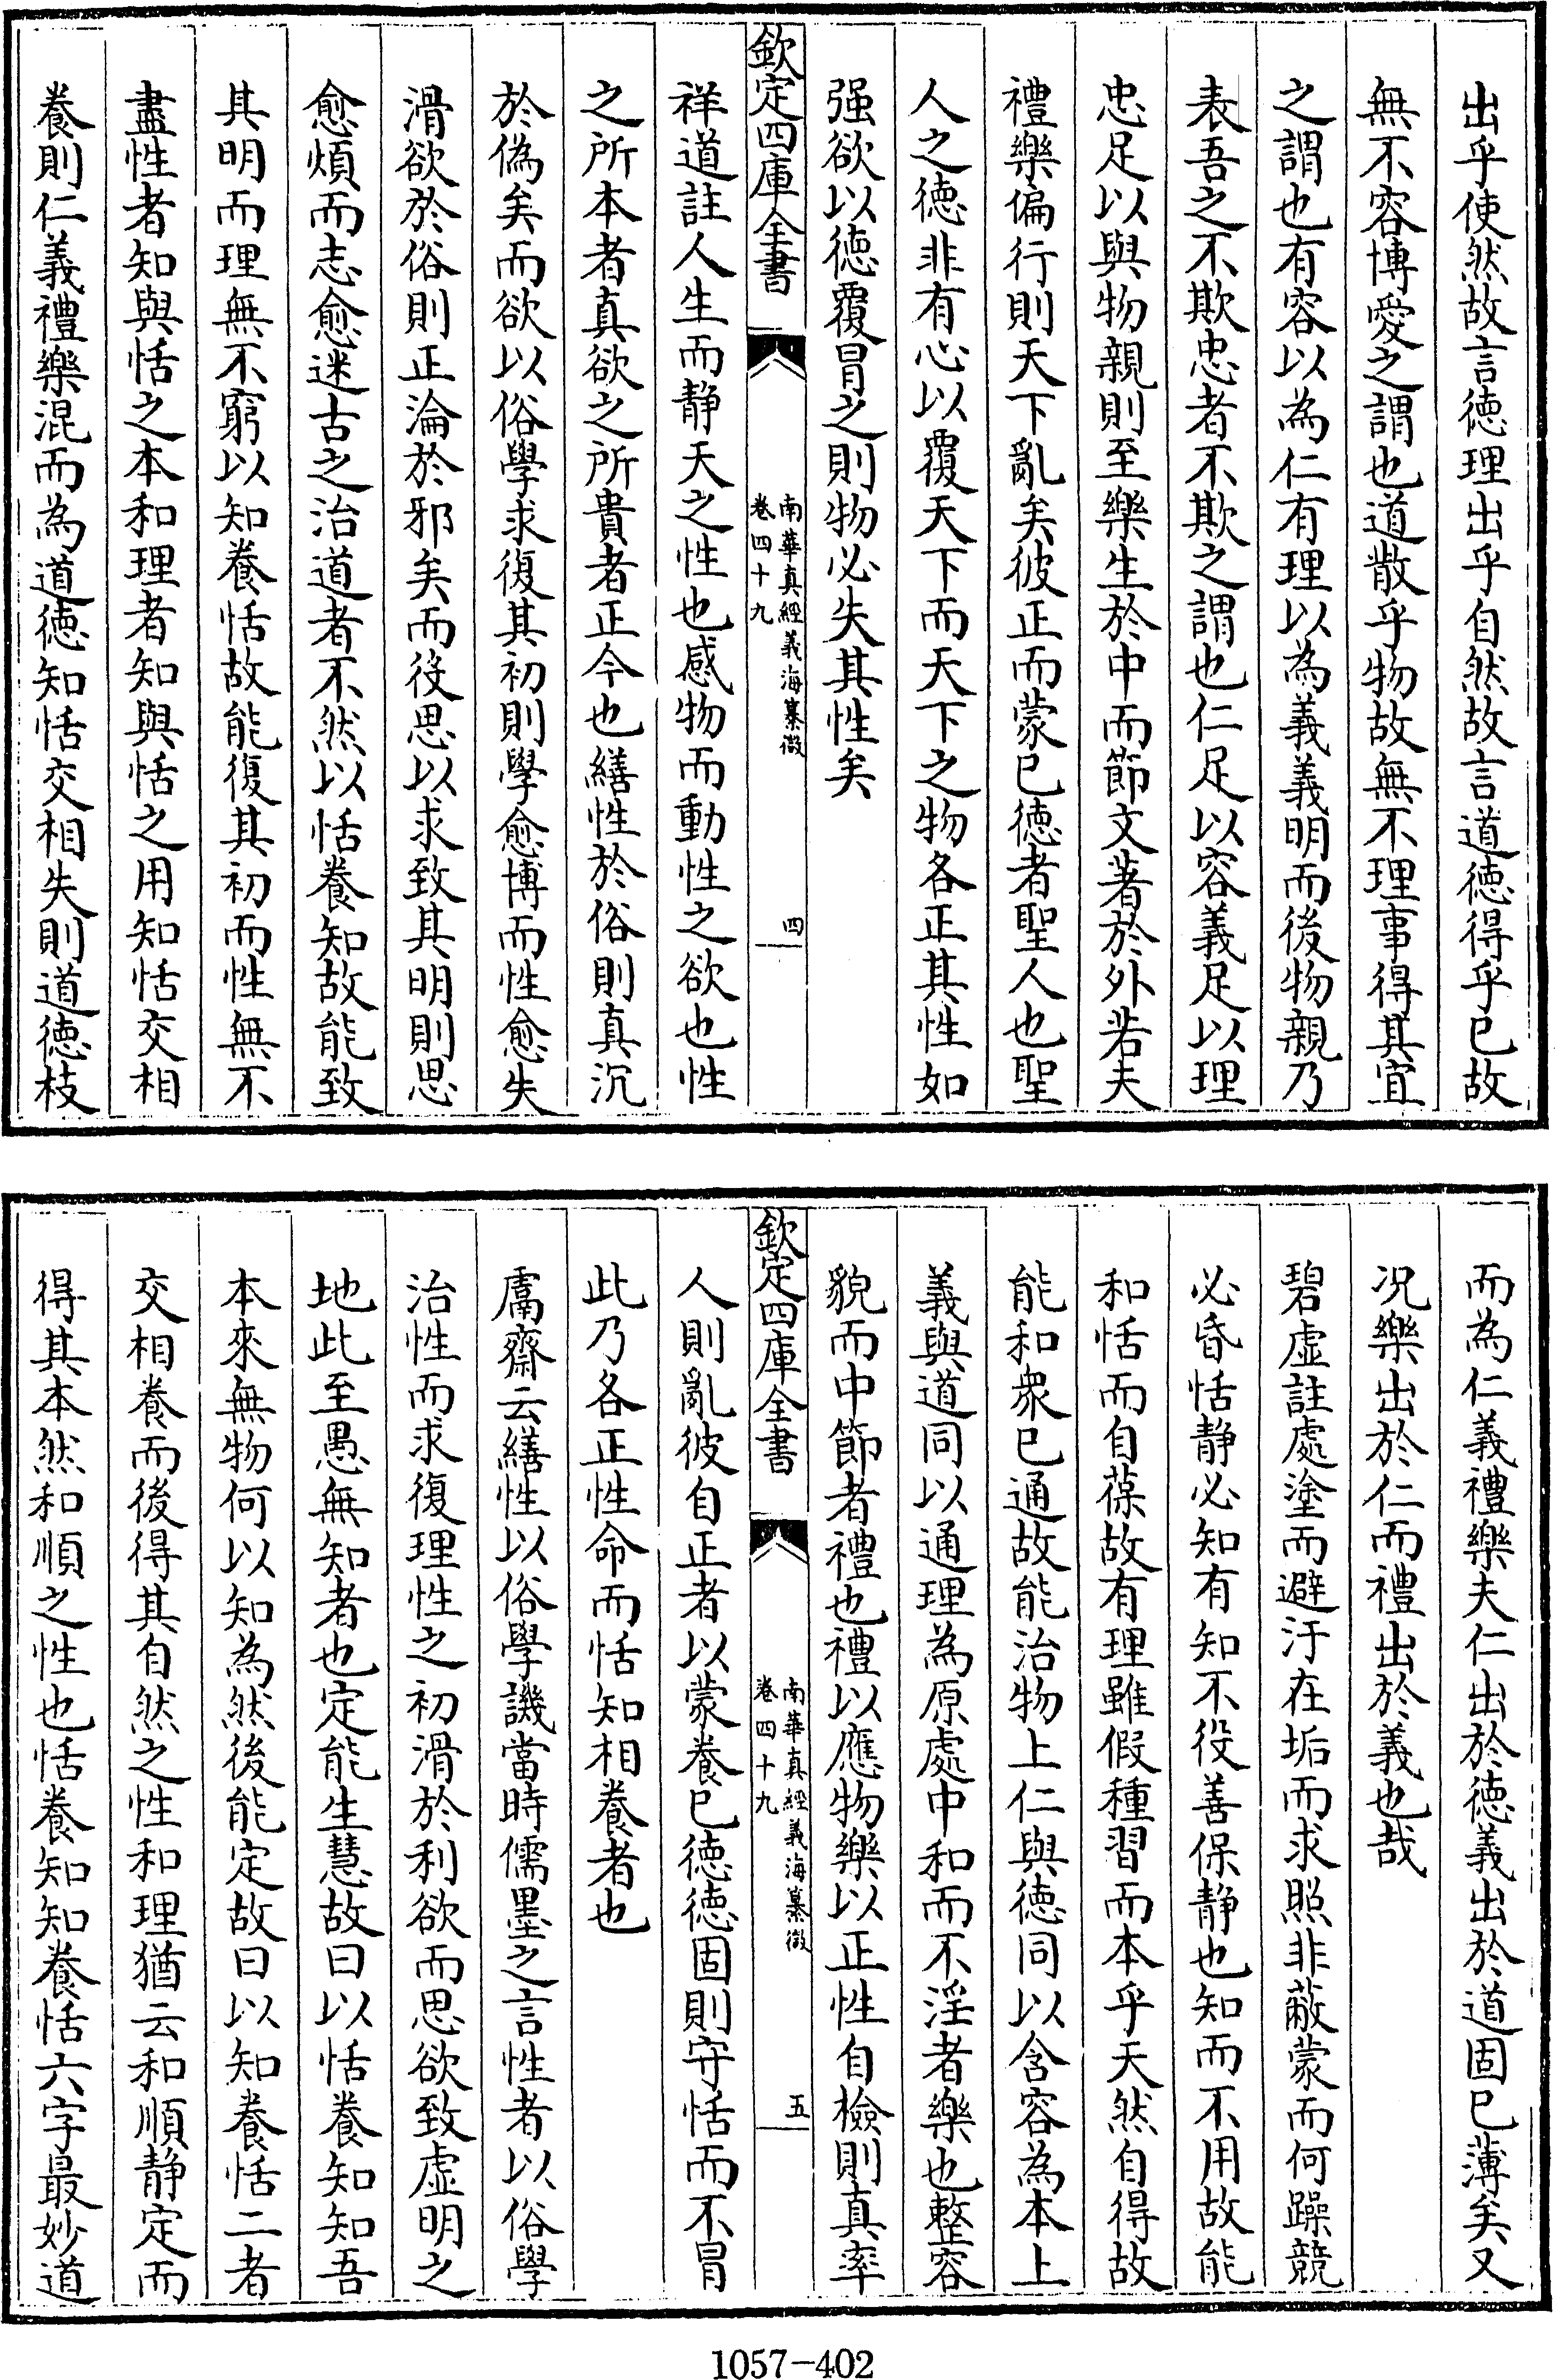 出乎使然故言徳理出乎自然故言道徳得乎已故
無不容博愛之謂也道散乎物故無不理事得其宜
之謂也有容以為仁有理以為義義明而後物親乃
表吾之不欺忠者不欺之謂也仁足以容義足以理
忠足以與物親則至樂生於中而節文著於外若夫
禮樂偏行則天下亂矣彼正而蒙已徳者聖人也聖
人之徳非有心以覆天下而天下之物各正其性如
强欲以徳覆冒之則物必失其性矣
欽定四庫全書
南華真經義海纂微
卷四十九
四
祥道註人生而静天之性也感物而動性之欲也性
之所本者真欲之所貴者正今也繕性於俗則真沉
於偽矣而欲以俗學求復其初則學愈博而性愈失
滑欲於俗則正淪於邪矣而役思以求致其明則思
愈煩而志愈迷古之治道者不然以恬養知故能致
其明而理無不窮以知養恬故能復其初而性無不
盡性者知與恬之本和理者知與恬之用知恬交相
養則仁義禮樂混而為道徳知恬交相失則道徳枝
而為仁義禮樂夫仁出於徳義出於道固已薄矣又
况樂出於仁而禮出於義也哉
碧虛註處塗而避汙在垢而求照非蔽蒙而何躁競
必昏恬静必知有知不役善保静也知而不用故能
和恬而自葆故有理雖假種習而本乎天然自得故
能和衆已通故能治物上仁與徳同以含容為本上
義與道同以通理為原處中和而不淫者樂也整容
貌而中節者禮也禮以應物樂以正性自檢則真率
欽定四庫全書
南華真經義海纂微
卷四十九
五
人則亂彼自正者以蒙養已徳徳固則守恬而不冒
此乃各正性命而恬知相養者也
鬳齋云繕性以俗學譏當時儒墨之言性者以俗學
治性而求復理性之初滑於利欲而思欲致虚明之
地此至愚無知者也定能生慧故曰以恬養知知吾
本來無物何以知為然後能定故曰以知養恬二者
交相養而後得其自然之性和理猶云和順静定而
得其本然和順之性也恬養知知養恬六字最妙道
1057-402